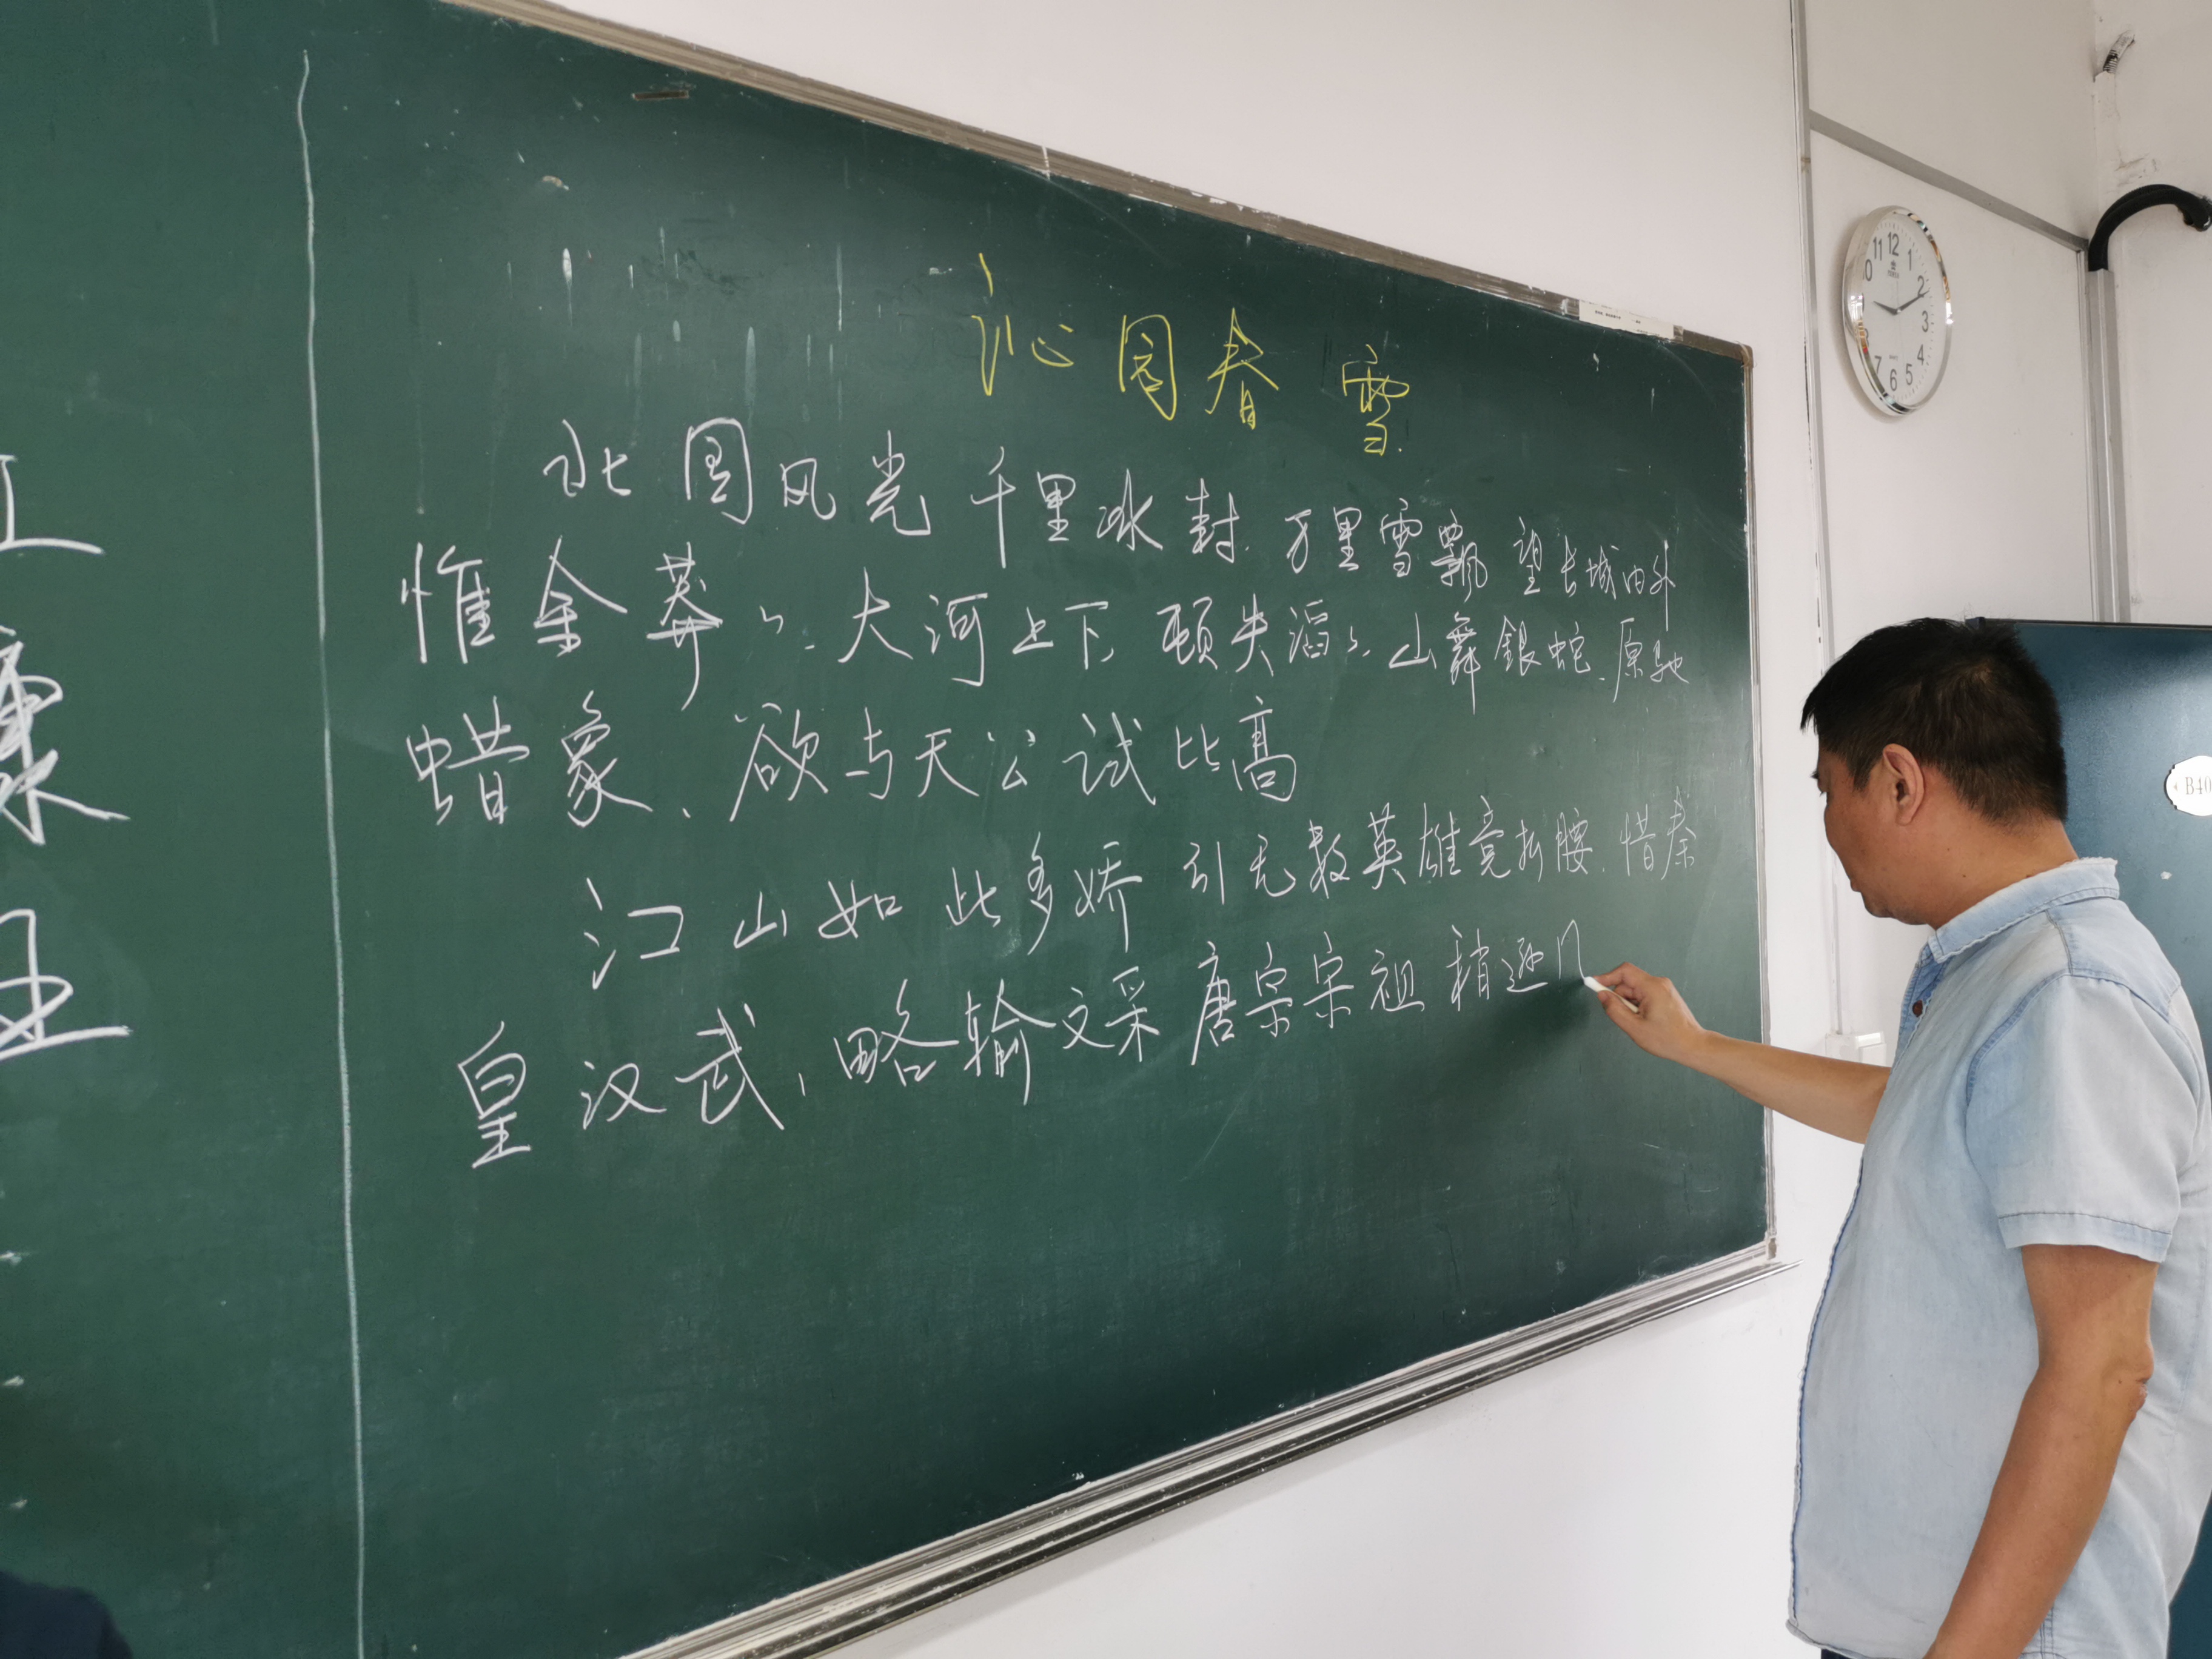 沁园春 雪
北国风光 千里冰封. 万里雪飘 望长城内外
惟余莽々、大河上下, 顿失滔々. 山舞銀蛇. 原驰
蜡象、欲与天公试比高
江山如此多娇 引无数英雄竞折腰. 惜秦
皇汉武, 略输文采 唐宗宋祖 稍逊
11 12 1
2
3
4
5
6
7
B40